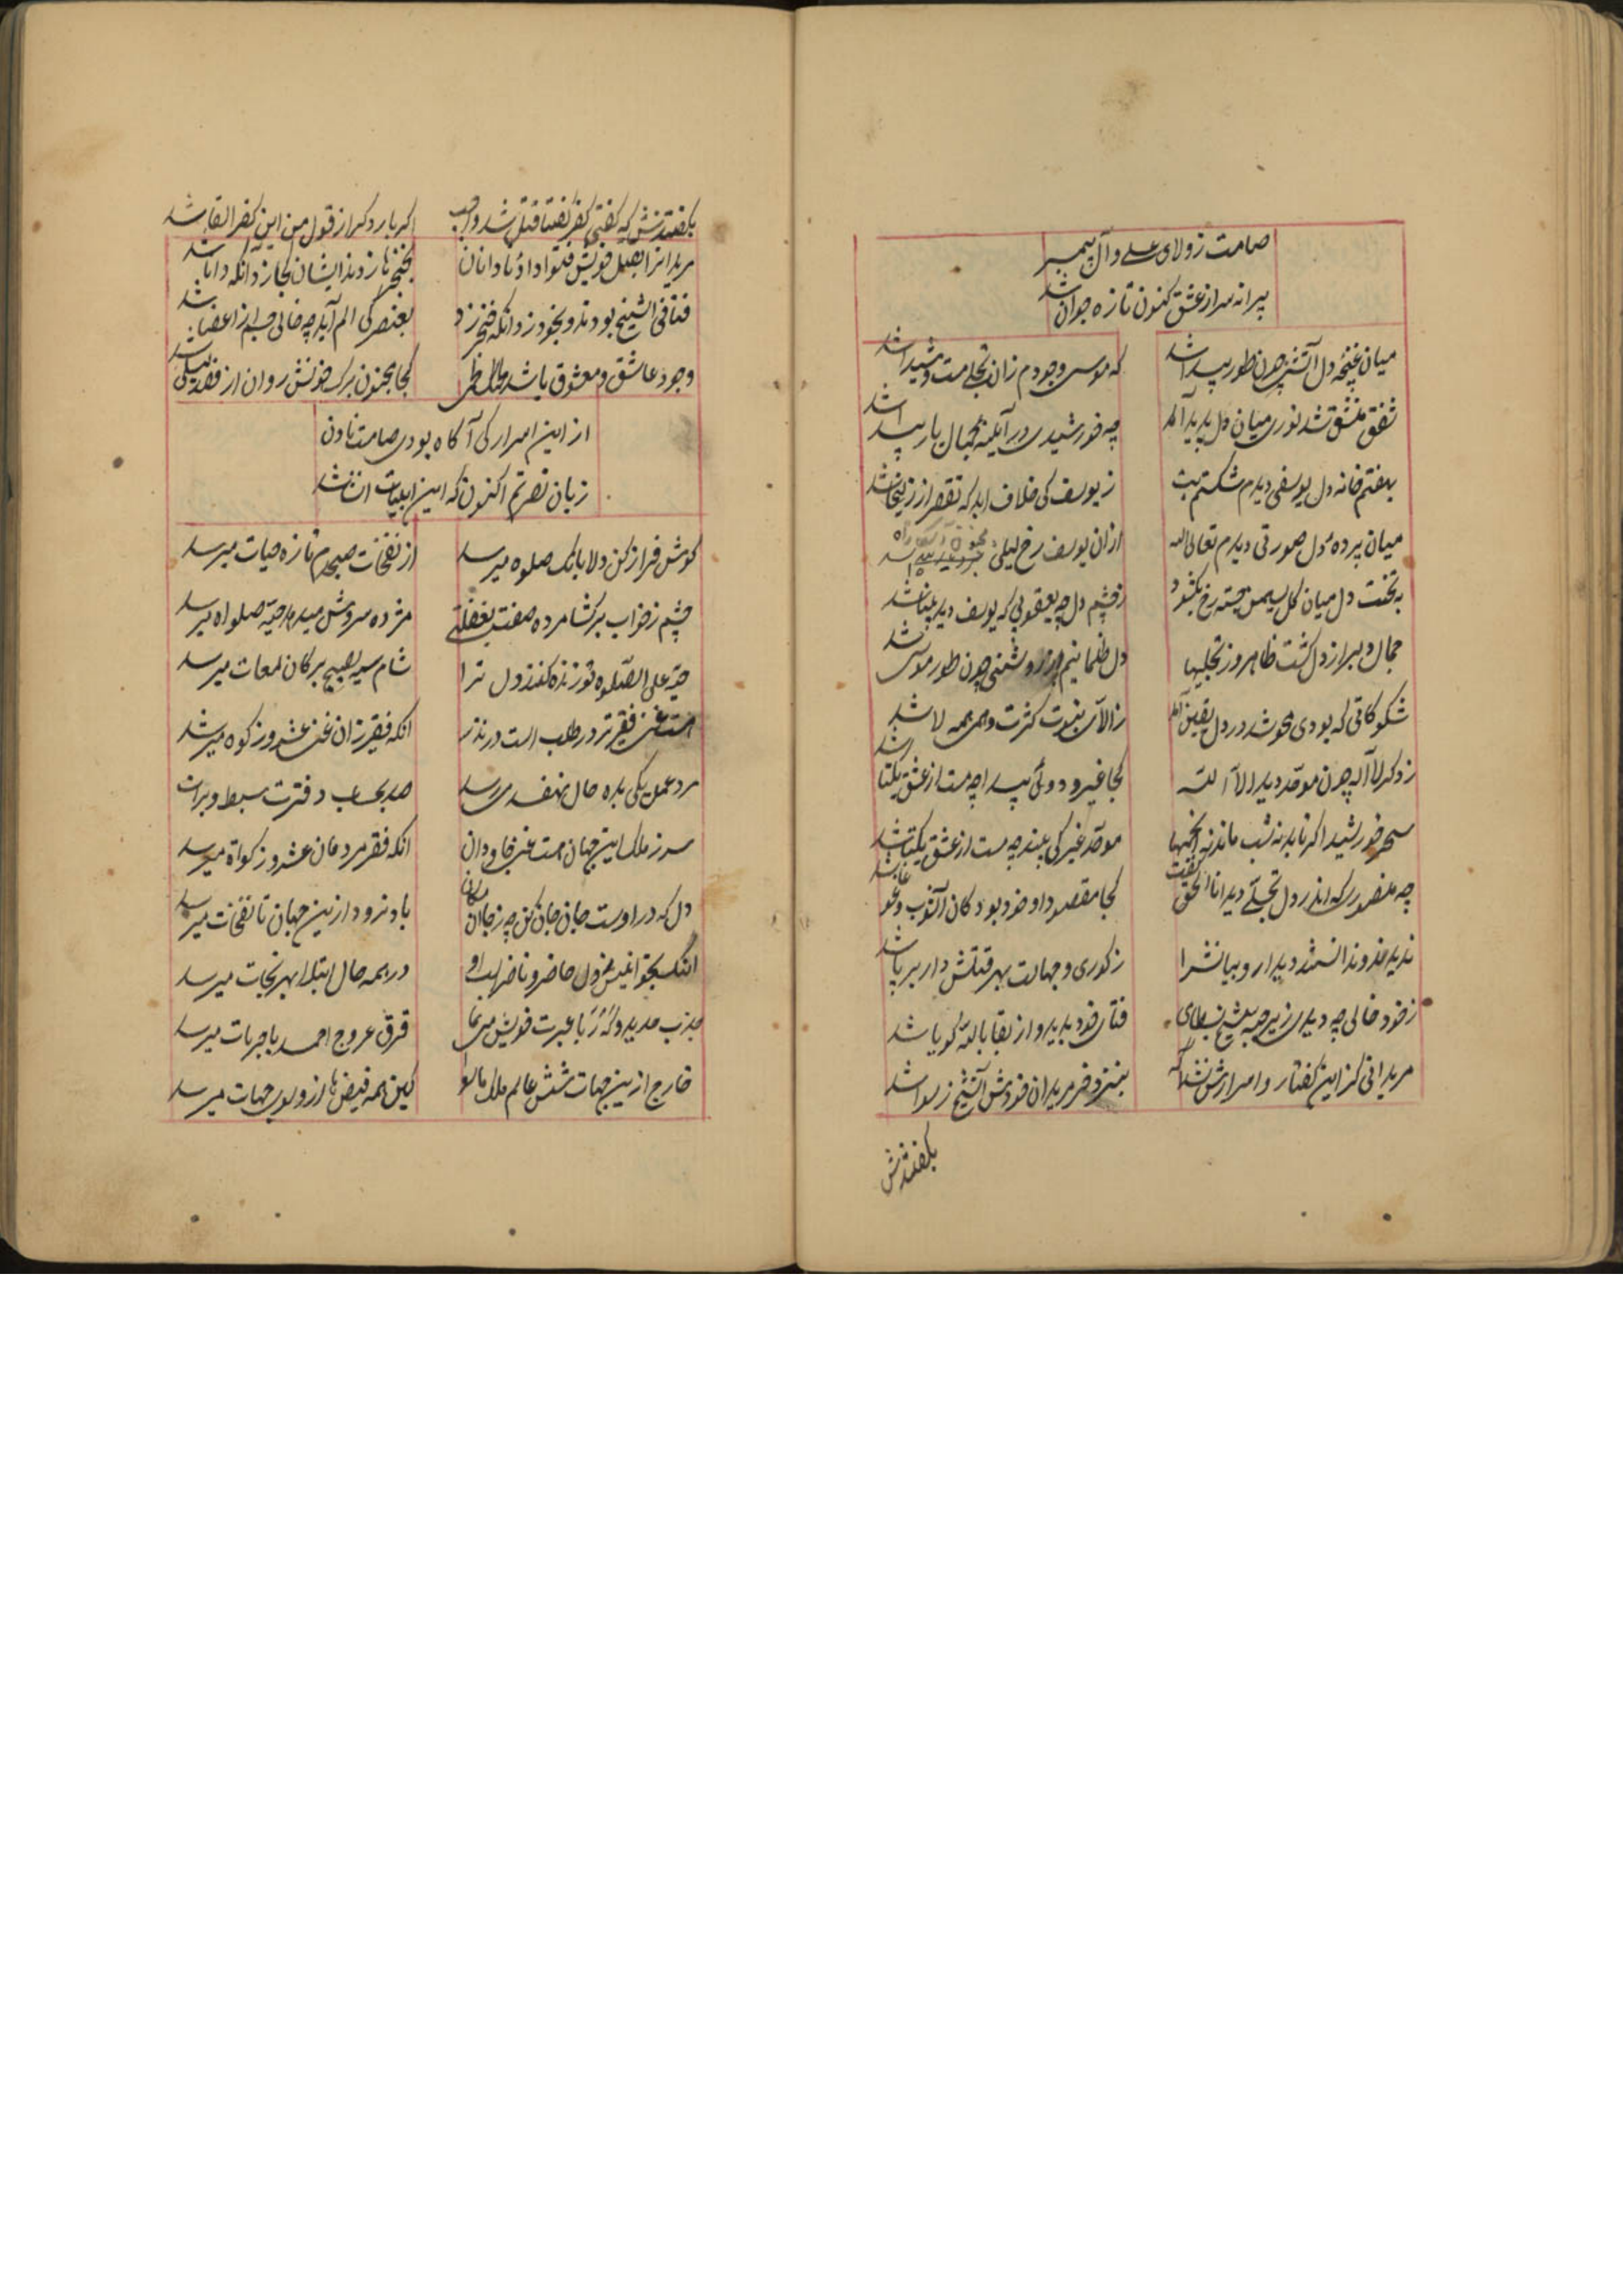 صامت ز ولای علی و آل پیمبر
پیرانه سر از عشق کنون تازه جوان شد
میان غنچهٔ دل آتشی چون طور پیدا شد
که موسی وجودم زان تجلی مست و شیدا شد
شفق منشق شد نوری میان دل پدید آمد
چه خورشیدی در آیینه جمال یار پیدا شد
بهفتم خانه دل یوسفی دیدم شکستم بت
ز یوسف کی خلاف اید که تقصیر از زلیخا شد
میان پرده دل صورتی دیدم تعالی الله
ازان یوسف رخ لیلی
به تخت دل میان کل سیمین رخ بکشود
ز چشم دل چه یعقوبی که یوسف دید بینا شد
جمال دلبر از دل کشت ظاهر وز تجلیها
دل ظلمانیم از روشنی چون طور موسی شد
شکوکاتی که بودی محو شد در دل یقین آمد
ز الا بی ثبوت کثرت و همی همه لا شد
ز ذکر لا اله چون موحد دید الا الله
کجا غیر و دوئی پیدا چه مست از عشق یکتا شد
سحر خورشید اکر تابد نه شب ماند نه انجمها
موحد غیر کی بیند چه مست از عشق یکتا شد
چه منصوری که اندر دل تجلی دید انا الحق گفت
کجا مقصود او خود بود کان آشوب و غوغا شد
ندیدند و ندانستند دیدار و بیانش را
ز کوری و جهالت بهر قتلش دار بر پا شد
ز خود خالی چه دیدی زیر جبه شیخ بسطامی
فنای خود بدید و از بقا بالله کویا شد
مریدانی کز این کفتار و اسرارش نه آکه
بنزد خر مریدان خودش آن شیخ رسوا شد
بکفتندش
بکفتندش که کفتی کفر کفتا قتل شد واجب
اکر بار دکر از قول من این کفر القا شد
مریدانرا بقتل خویش فتوا داد نادانان
بخنجرها زدند ایشان کجا زد آنکه دانا شد
فنا فی الشیخ بودند و بخود زد آنکه خنجر زد
بعنصر کی الم آید چه خالی جسم از اعضا شد
وجود عاشق و معشوق باشد
کجا مجنون برک خونش روان از فصد لیلی شد
از این اسرار کی آکاه بودی صامت نادان
زبان نصرتم اکنون که این ابیات انشا شد
کوش فراز کن دلا بانک صلوه میرسد
از نفخات صبحدم تازه حیات میرسد
چشم ز خواب برکشا مرده صفت بغفلتی
مژده سروش میدهد حی صلواه میرسد
حی علی الصلوه تو زنده کند دل ترا
شام سیه بصبح بر کان لمعات میرسد
هست غنی فقیرتر در طلب است در بدر
انکه فقیر زان غنی عشر و زکوه میرسد
مرد عمل یکی بده حال بهفصدی رسد
صد بحساب دفترت سبط و برات
سر ز ملک این جهان هست غنی جاودان
انکه فقر مردمان عشر و زکواة میرسد
دل که در اوست جان جان کن چه ز جان
باد نرود ازین جهان تا نفخات میرسد
حاضر و ناظر است او
در همه حال ابتلا بهر نجات میرسد
فرق عروج احمد با جربات میرسد
خارج از این جهات شش عالم ملک ما سوا
کین همه فیض ها از و بوی جهات میرسد